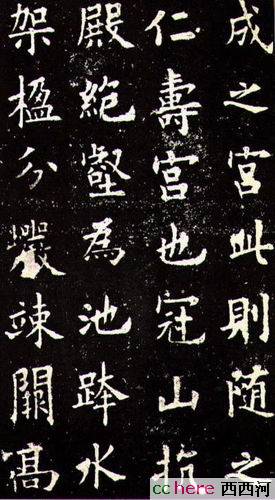 成之宮此則随之
仁壽宮也冠山抗
殿絶壑為池跨水
架楹分巖竦闕高
cchere 西西河